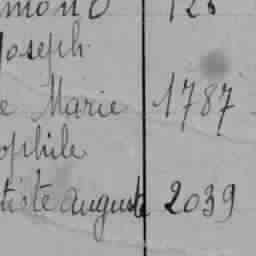 mond 128
Joseph
e Marie 1787
ophile
tiste auguste 2039